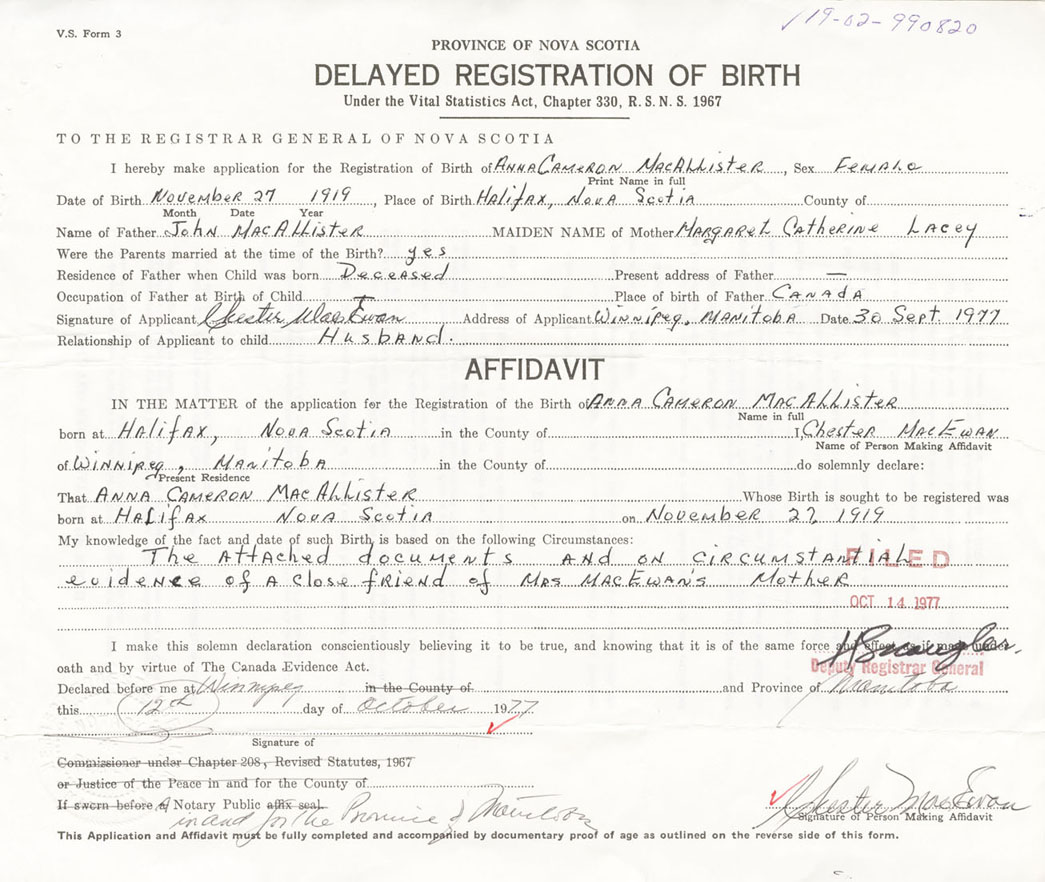 V.S. Form 3
✓19-02-990820
PROVINCE OF NOVA SCOTIA
DELAYED REGISTRATION OF BIRTH
Under the Vital Statistics Act, Chapter 330, R. S. N. S. 1967
TO THE REGISTRAR GENERAL OF NOVA SCOTIA
I hereby make application for the Registration of Birth of ANNA CAMERON MACALLISTER, Sex FEMALE
Print Name in full
Date of Birth NOVEMBER 27 1919, Place of Birth HALIFAX, NOVA SCOTIA County of
Month Date Year
Name of Father JOHN MACALLISTER MAIDEN NAME of Mother MARGARET CATHERINE LACEY
Were the Parents married at the time of the Birth? yes
Residence of Father when Child was born Deceased Present address of Father —
Occupation of Father at Birth of Child — Place of birth of Father CANADA
Signature of Applicant Chester MacEwan Address of Applicant WINNIPEG, MANITOBA Date 30 Sept. 1977
Relationship of Applicant to child HUSBAND.
AFFIDAVIT
IN THE MATTER of the application for the Registration of the Birth of ANNA CAMERON MACALLISTER
Name in full
born at HALIFAX, NOVA SCOTIA in the County of I, CHESTER MACEWAN
Name of Person Making Affidavit
of WINNIPEG, MANITOBA in the County of do solemnly declare:
Present Residence
That ANNA CAMERON MACALLISTER Whose Birth is sought to be registered was
born at HALIFAX NOVA SCOTIA on NOVEMBER 27, 1919
My knowledge of the fact and date of such Birth is based on the following Circumstances:
The ATTACHED documents AND ON CIRCUMSTANTIAL
evidence of A close friend of MRS MACEWAN'S MOTHER
FILED
OCT 14 1977
I make this solemn declaration conscientiously believing it to be true, and knowing that it is of the same force and effect as if made under
oath and by virtue of The Canada Evidence Act.
Deputy Registrar General
Declared before me at Winnipeg in the County of and Province of Manitoba
this 12th day of October 1977
Signature of
Commissioner under Chapter 208, Revised Statutes, 1967
or Justice of the Peace in and for the County of
If sworn before A Notary Public affix seal.
in and for the Province of Manitoba
Chester MacEwan
Signature of Person Making Affidavit
This Application and Affidavit must be fully completed and accompanied by documentary proof of age as outlined on the reverse side of this form.